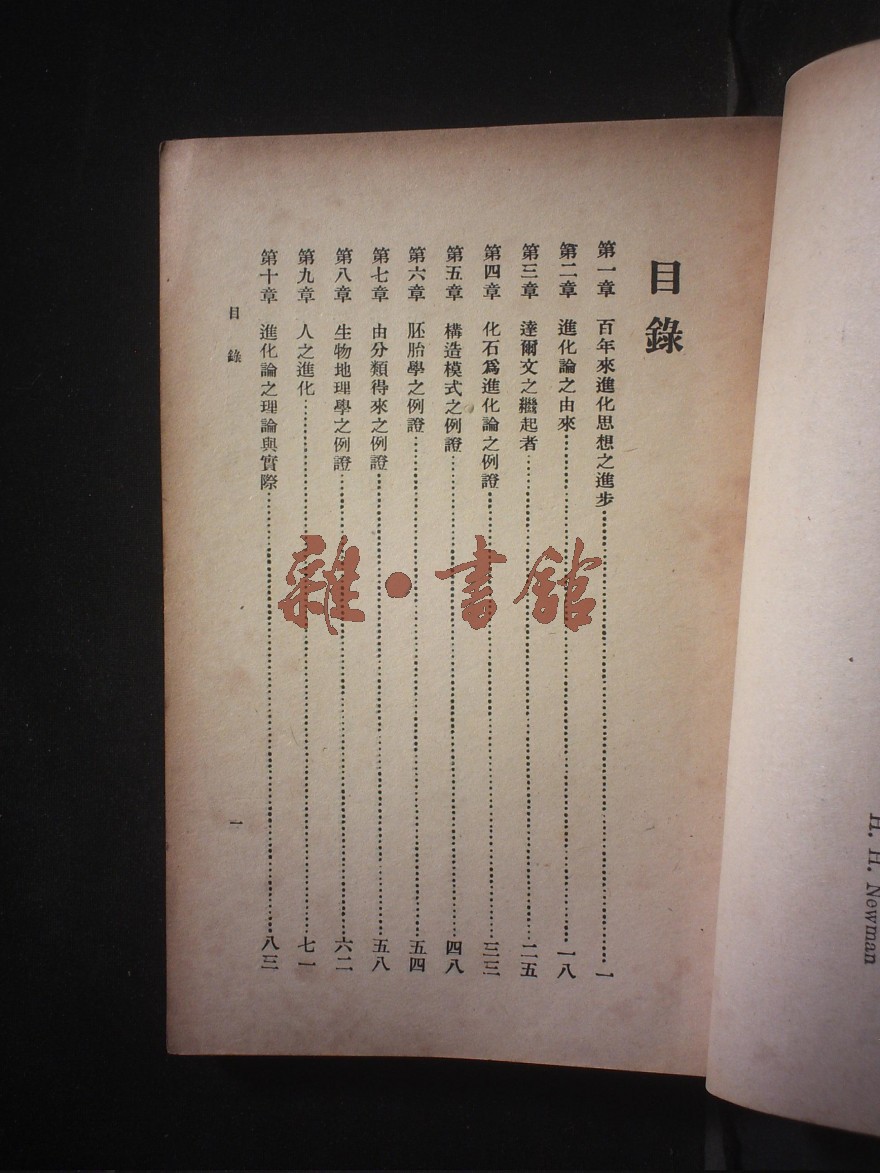 目錄
第一章 百年來進化思想之進步……一
第二章 進化論之由來……一八
第三章 達爾文之繼起者……二五
第四章 化石爲進化論之例證……三三
第五章 構造模式之例證……四八
第六章 胚胎學之例證……五四
第七章 由分類得來之例證……五八
第八章 生物地理學之例證……六二
第九章 人之進化……七一
第十章 進化論之理論與實際……八三
目錄
一
雜·書館
H. H. Newman